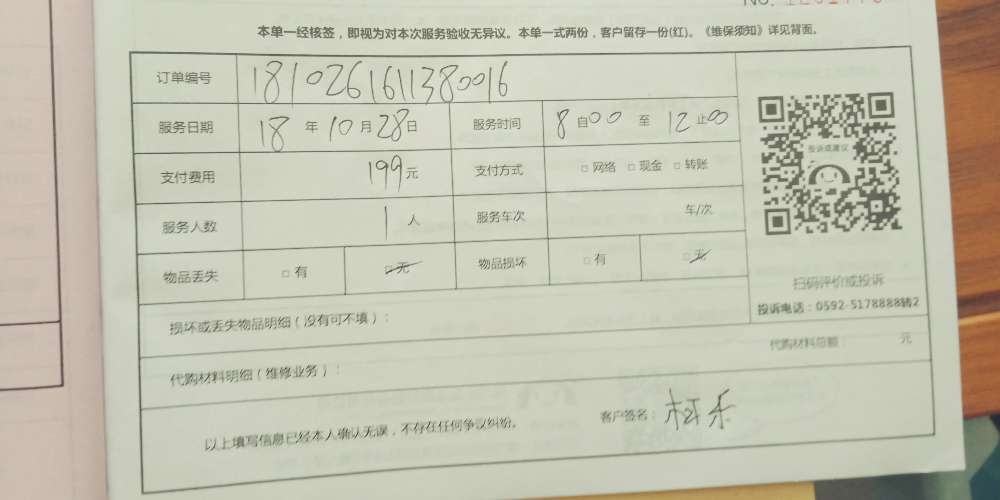 本单一经核签，即视为对本次服务验收无异议。本单一式两份，客户留存一份(红)。《维保须知》详见背面。
订单编号 1810261611380016
服务日期 18 年 10 月 28 日 服务时间 8 自 00 至 12 止 00
支付费用 199 元 支付方式 □ 网络 □ 现金 □ 转账
服务人数 1 人 服务车次 车/次
物品丢失 □ 有 □ 无 物品损坏 □ 有 □ 无
投诉或建议
扫码评价或投诉
投诉电话：0592-5178888转2
损坏或丢失物品明细（没有可不填）：
代购材料明细（维修业务）： 代购材料总额： 元
以上填写信息已经本人确认无误，不存在任何争议纠纷。 客户签名：